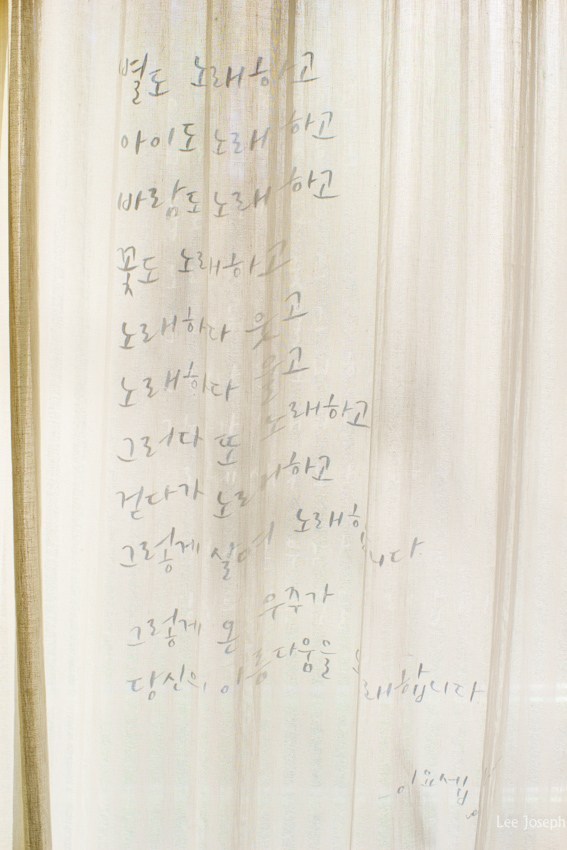 별도 노래하고
아이도 노래하고
바람도 노래하고
꽃도 노래하고
노래하다 웃고
노래하다 울고
그러다 또 노래하고
걷다가 노래하고
그렇게 살며 노래합니다
그렇게 온 우주가
당신의 아름다움을 노래합니다
이요셉
Lee Joseph